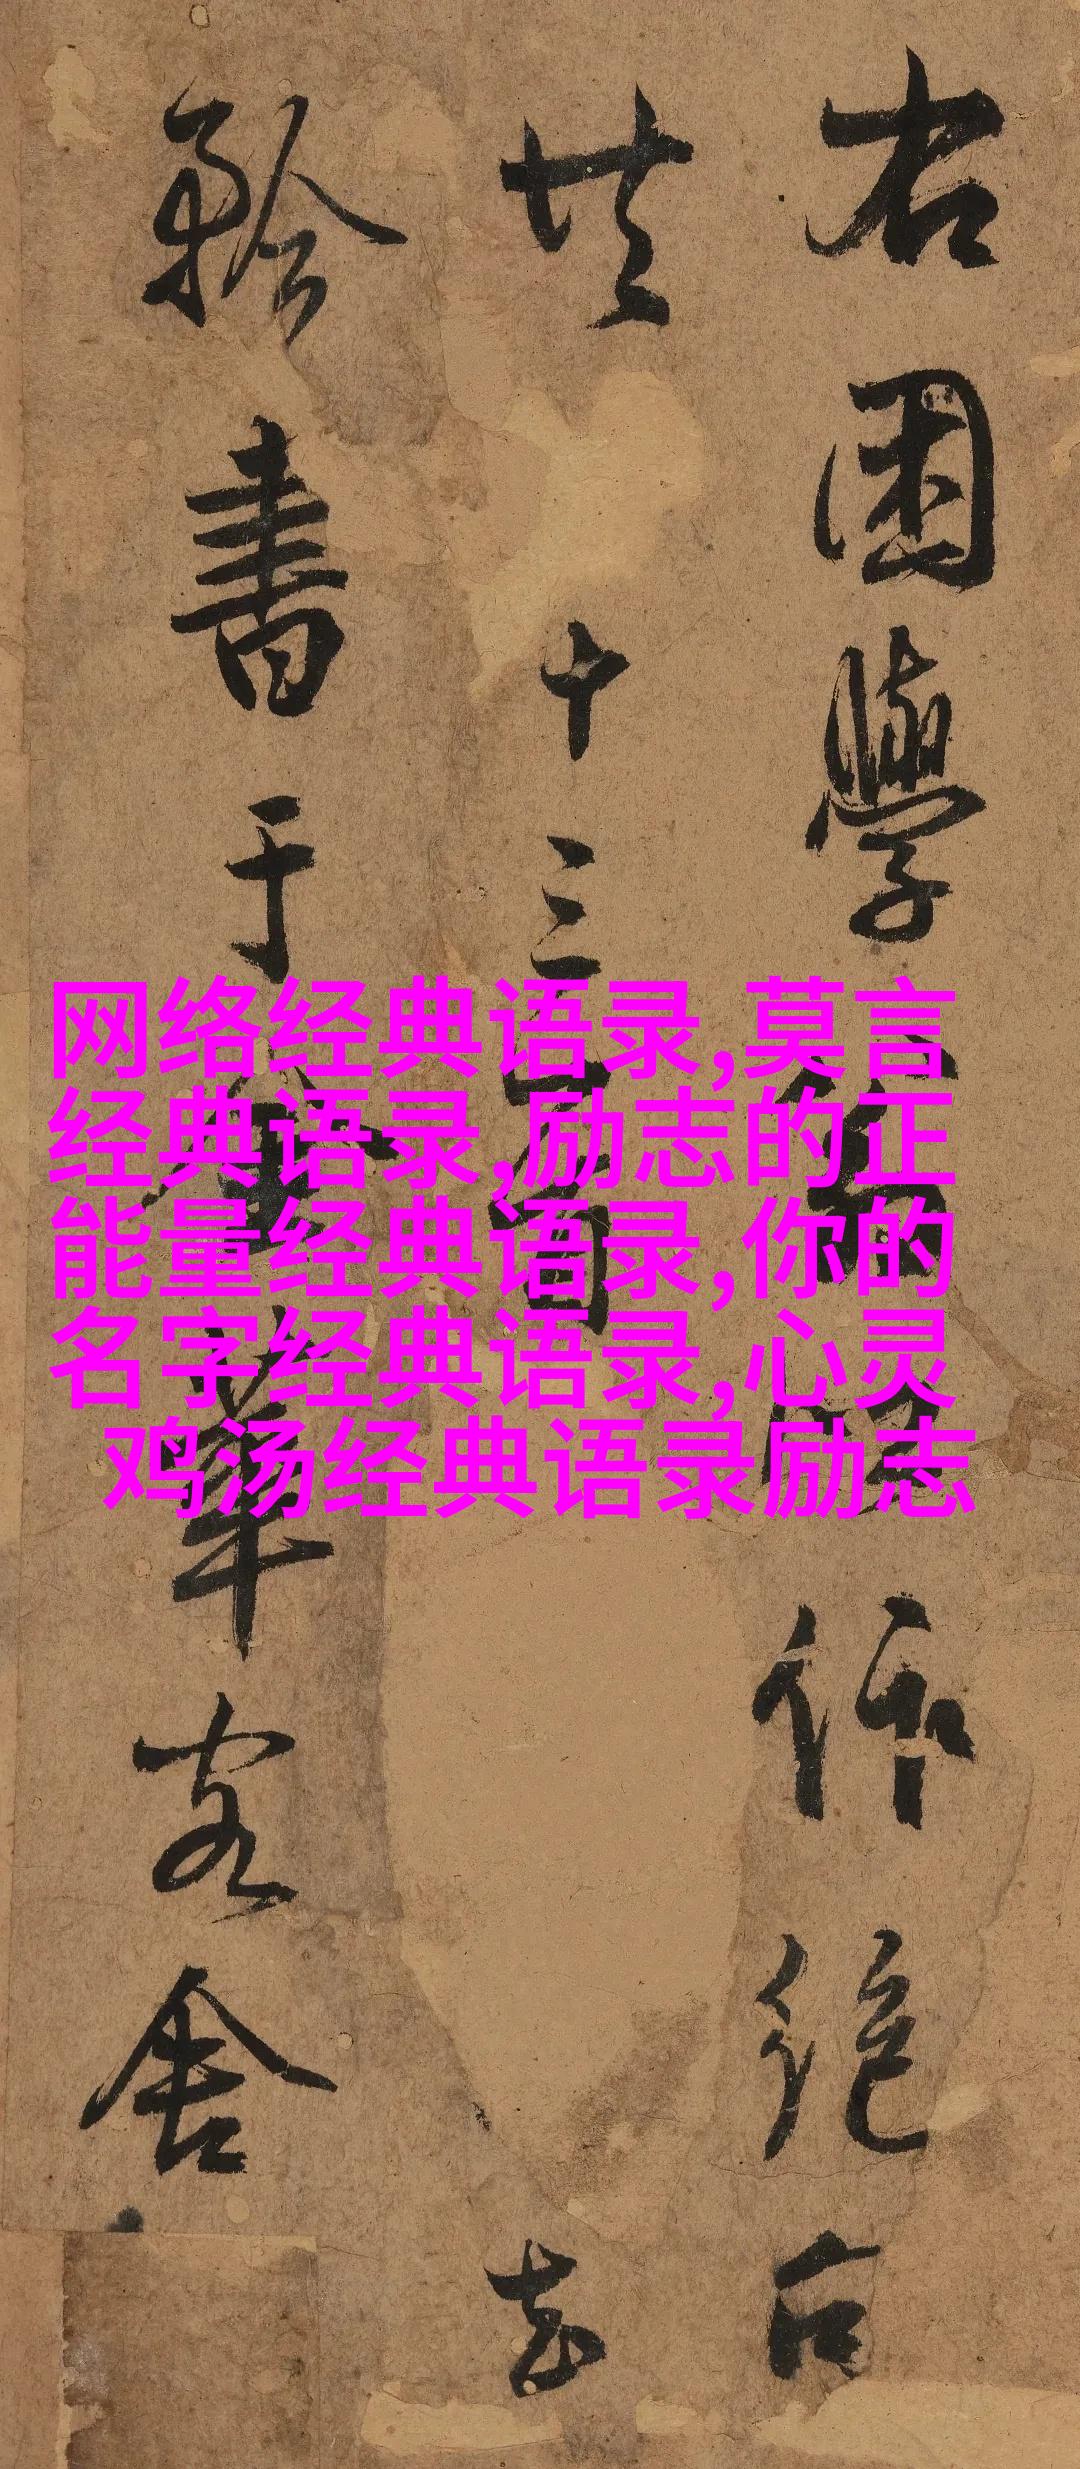 右困學作絕句
共十三首
書于華客舍
网络经典语录,莫言
经典语录,励志的正
能量经典语录,你的
名字经典语录,心灵
鸡汤经典语录励志